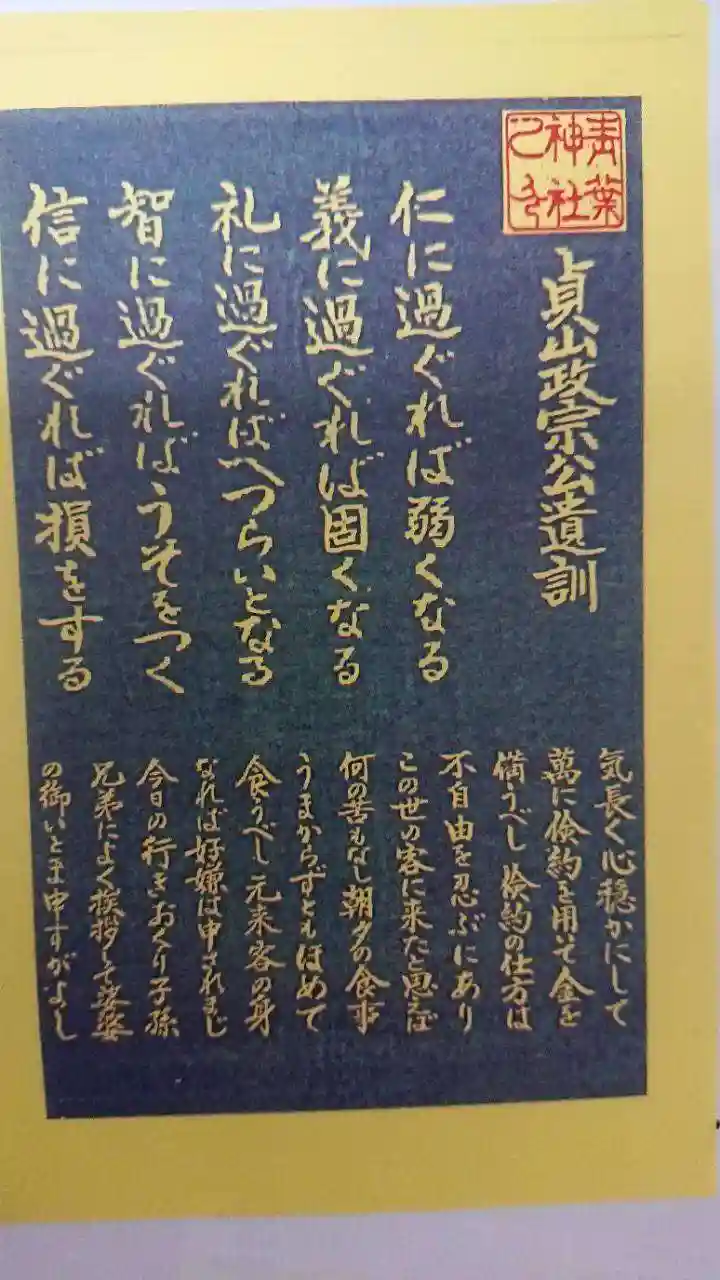 青葉
神社
貞山政宗公遺訓
仁に過ぐれば弱くなる
義に過ぐれば固くなる
礼に過ぐればへつらいとなる
智に過ぐればうそをつく
信に過ぐれば損をする
気長く心穏かにして
萬に倹約を用いて金を
備うべし 倹約の仕方は
不自由を忍ぶにあり
この世の客に来たと思えば
何の苦もなし朝夕の食事
うまからずともほめて
食うべし 元来客の身
なれば好嫌は申されまじ
今日の行きおくり子孫
兄弟によく挨拶して娑婆
の御いとま申すがよし